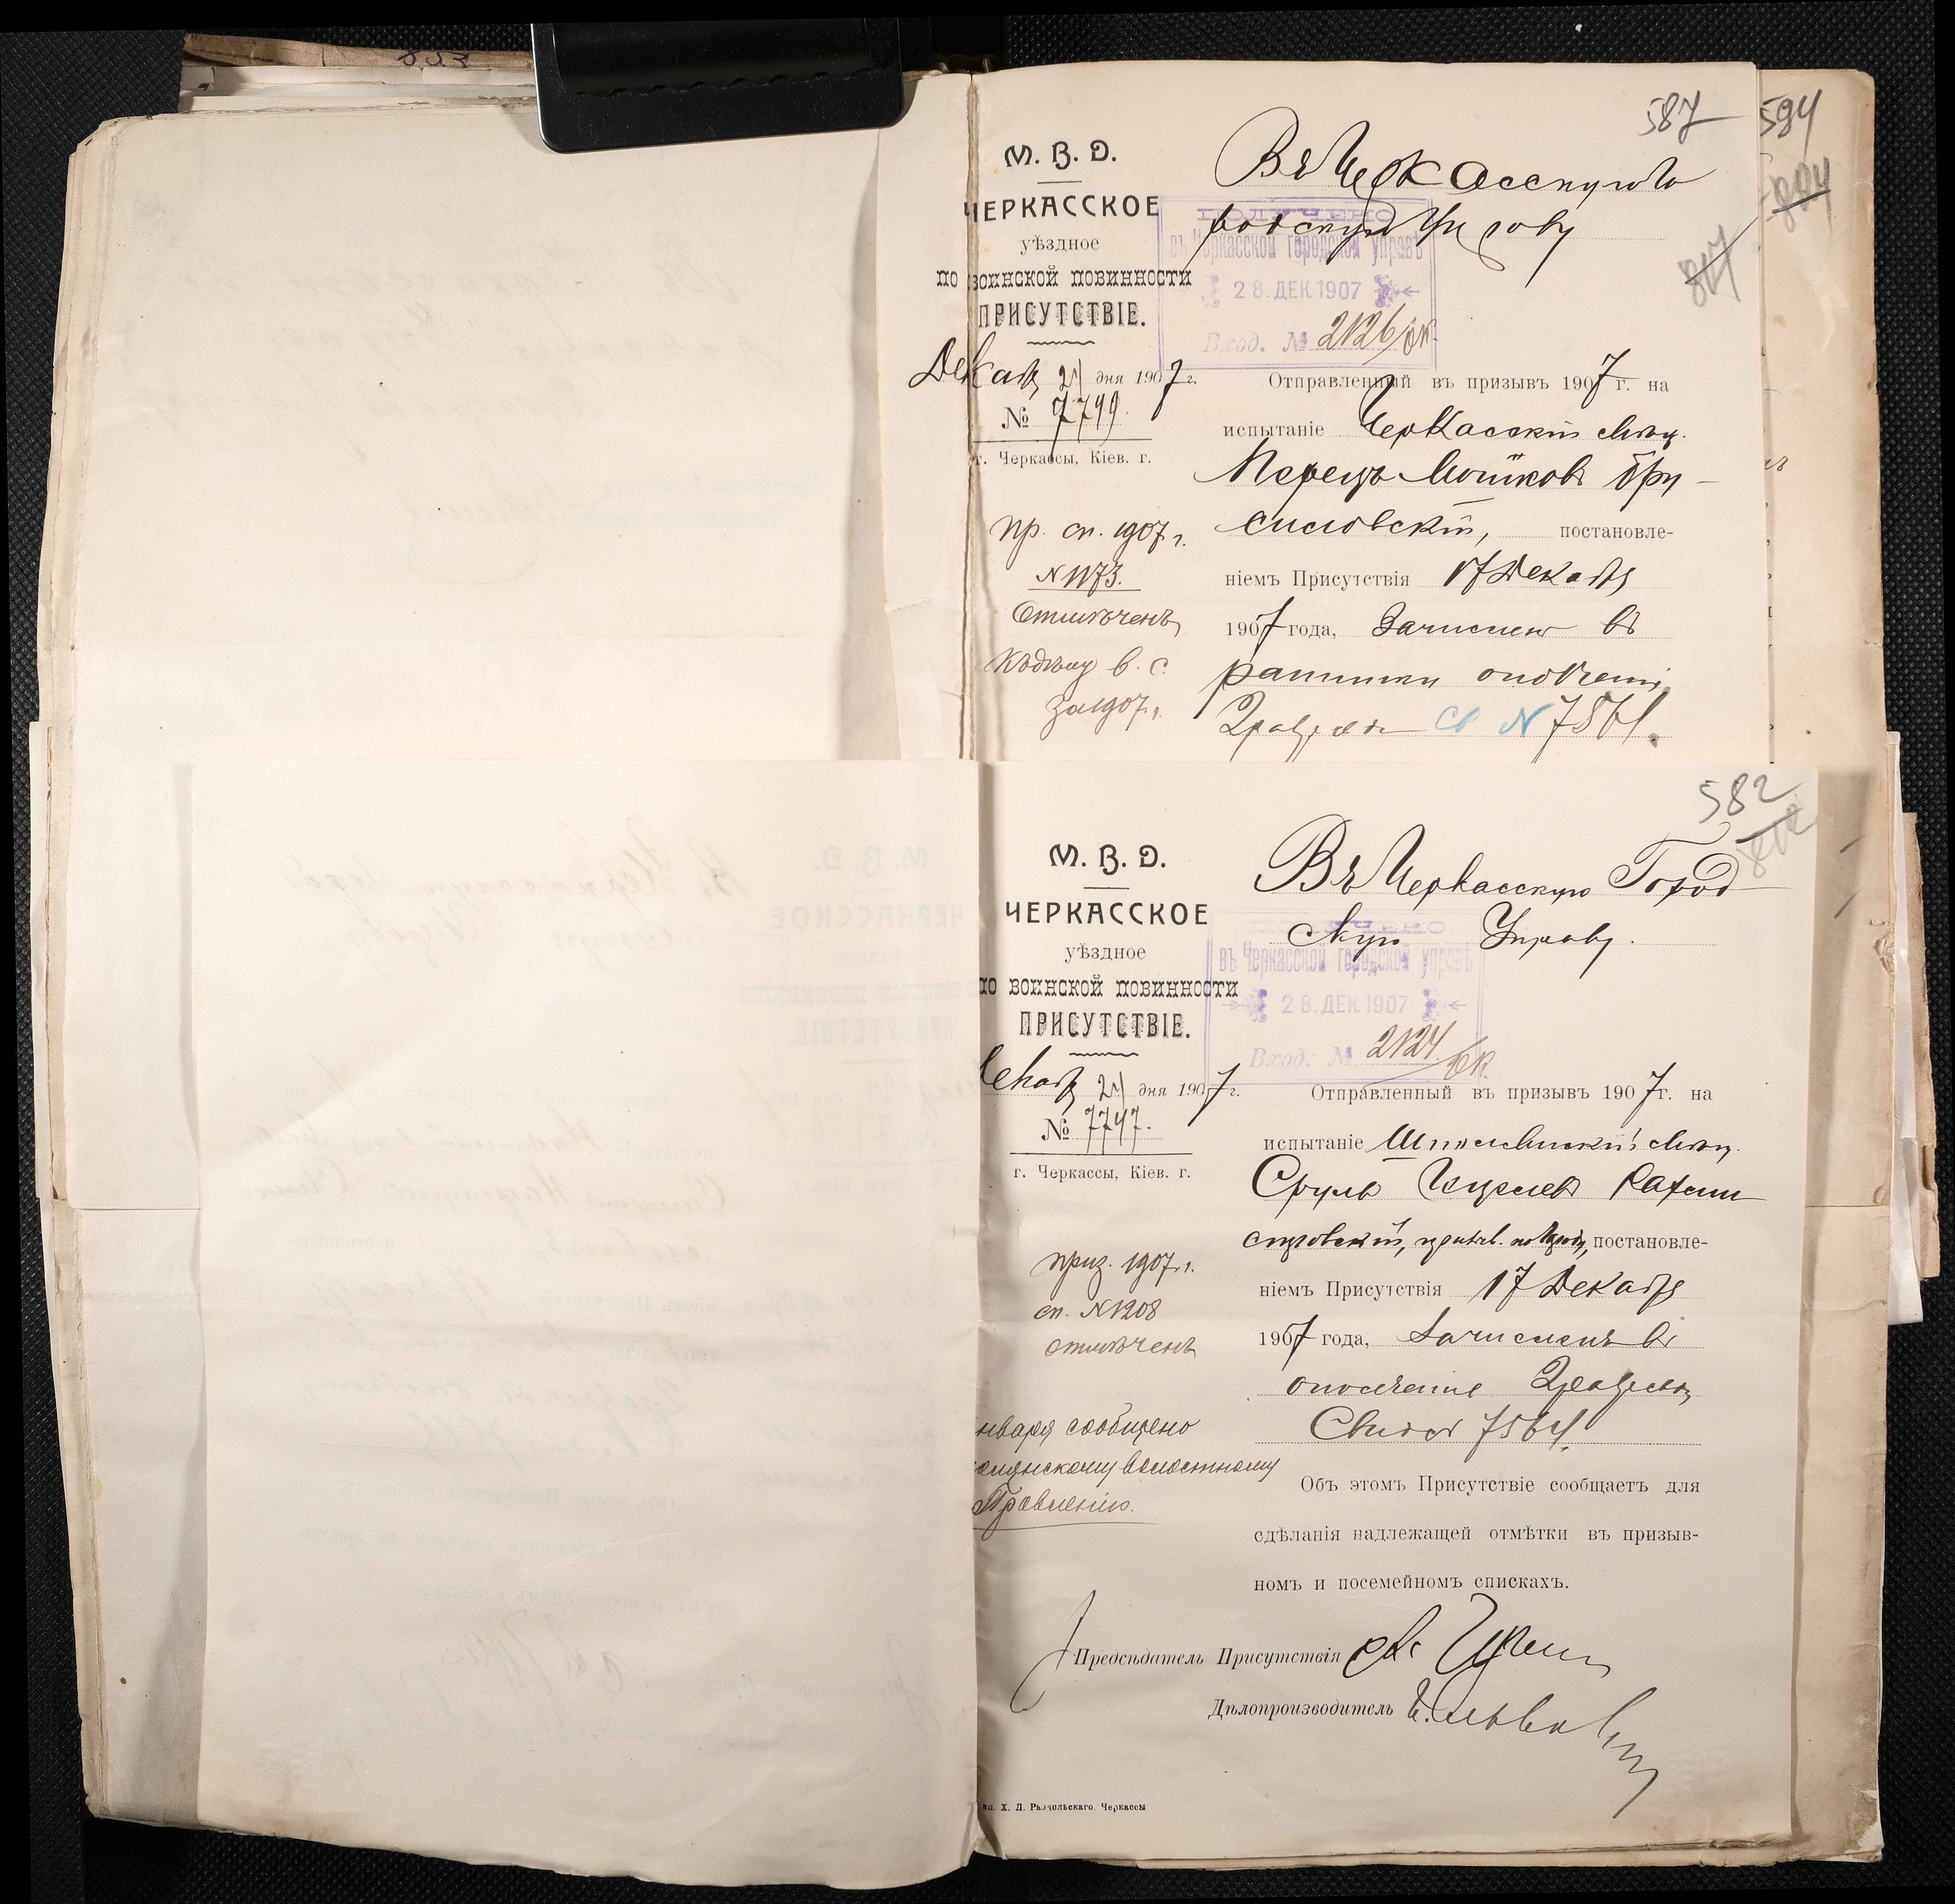 587
594
М. В. Д.
ЧЕРКАССКОЕ
уѣздное
по воинской повинности
ПРИСУТСТВІЕ.
Декаб 24 дня 1907 г.
№ 7799.
г. Черкассы, Кіев. г.
Въ Черкасскую Го
родскую Управу
ПОЛУЧЕНО
въ Черкасской городской управѣ
28. ДЕК. 1907
Вход. № 2126
Отправленный въ призывъ 1907 г. на
испытаніе Черкасскій мѣщ.
Перецъ Мошковъ Бру-
силовскій, постановле-
ніемъ Присутствія 17 Декабря
1907 года, Зачисленъ въ
ратники ополченія
2 разряда св № 7561.
пр. сп. 1907 г.
№ 1173.
Отмѣченъ
в. с.
за 1907 г.
582
М. В. Д.
ЧЕРКАССКОЕ
уѣздное
по воинской повинности
ПРИСУТСТВІЕ.
Декаб 24 дня 1907 г.
№ 7747.
г. Черкассы, Кіев. г.
Въ Черкасскую Город
скую Управу.
ПОЛУЧЕНО
въ Черкасской городской управѣ
28. ДЕК. 1907
Вход. № 2124
Отправленный въ призывъ 1907 г. на
испытаніе Шполянскій мѣщ.
Сруль
постановле-
ніемъ Присутствія 17 Декабря
1907 года, Зачисленъ въ
ополченіе 2 разряда
Свидѣт 7564.
Объ этомъ Присутствіе сообщаетъ для
сдѣланія надлежащей отмѣтки въ призыв-
номъ и посемейномъ спискахъ.
Предсѣдатель Присутствія
Дѣлопроизводитель
приз. 1907 г.
сп. № 1208
отмѣченъ
нваря сообщено
олянскому Волостному
Правленію.
Х. Д. Раздольскаго. Черкассы